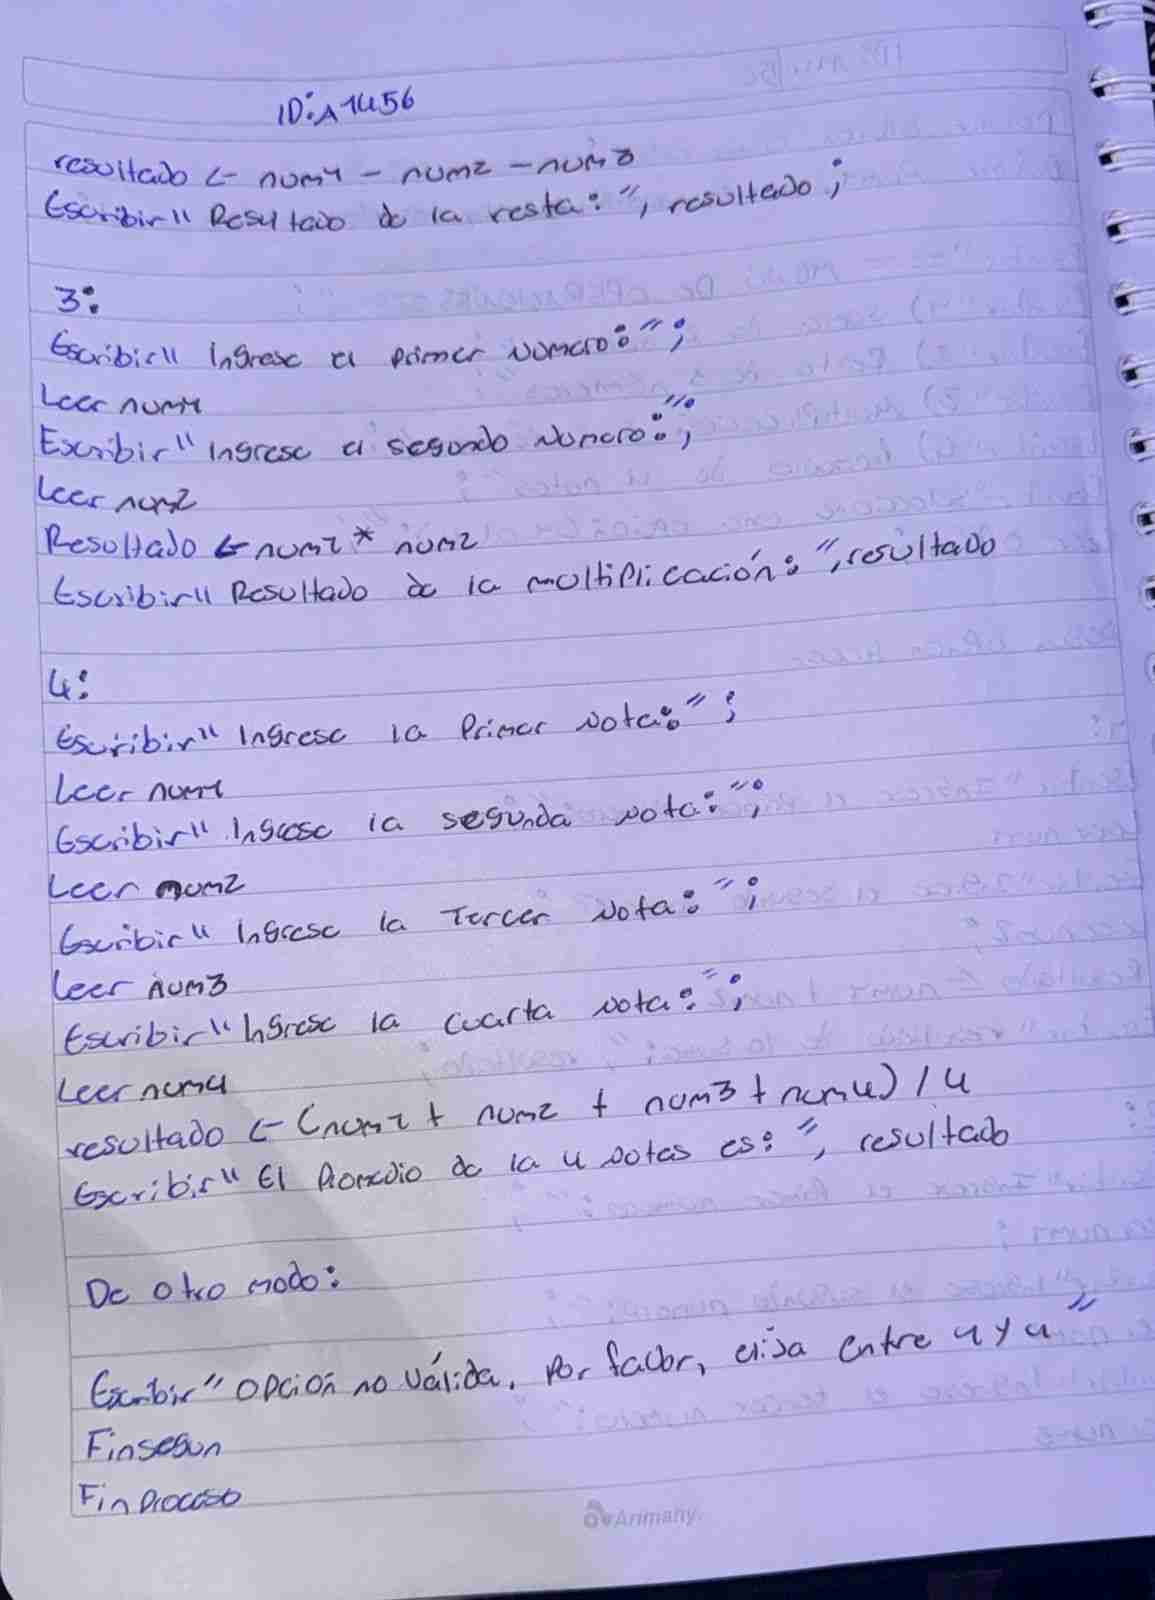 ID: A1456
resultado <- num1 - num2 - num3
Escribir" Resultado de la resta: ", resultado;
3:
Escribir" Ingrese el primer numero: ";
Leer num1
Escribir" Ingrese el segundo numero: ";
Leer num2
Resultado <- num1 * num2
Escribir" Resultado de la multiplicación: ", resultado
4:
Escribir" Ingrese la Primer Nota: ";
Leer num1
Escribir" Ingrese la segunda nota: ";
Leer num2
Escribir" Ingrese la Tercer Nota: ";
Leer num3
Escribir" Ingrese la cuarta nota: ";
Leer num4
resultado <- (num1 + num2 + num3 + num4) / 4
Escribir" El Promedio de la 4 notas es: ", resultado
De otro modo:
Escribir" opción no válida. Por favor, elija entre 1 y 4"
Finsegun
Fin Proceso
Arimany.